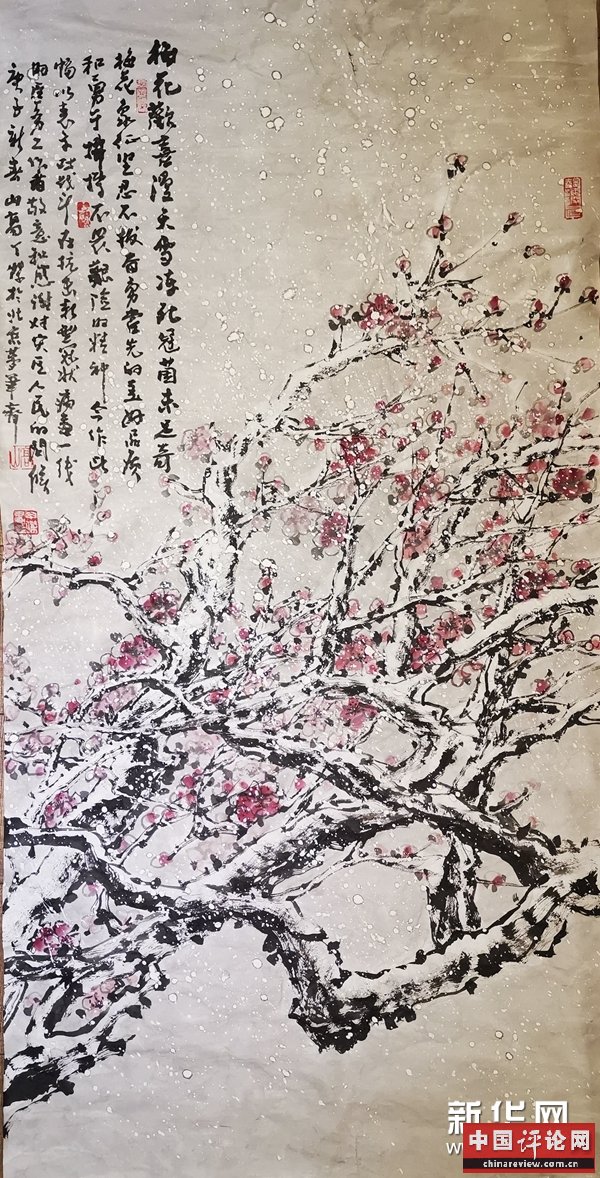 梅花歡喜漫天雪凍死冠菌未足奇
梅花象征坚忍不拔奋勇當先的美好品质
和勇于拚搏不畏艱险的精神今作此
幅以表予战斗在抗击新型冠状病毒一线
医务工作者敬意和感谢对灾区人民的問候
庚子新春山高丁於北京夢筆齋
新华网
中国评论网
chinareview.com.cn